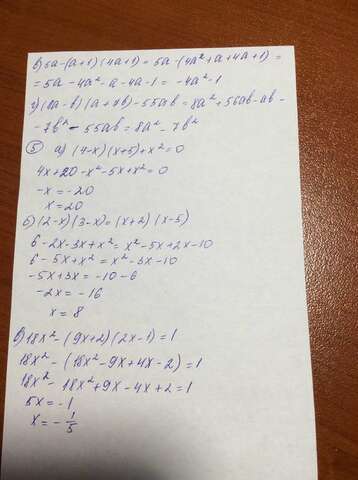 в) 5a-(a+1)(4a+1) = 5a-(4a²+a+4a+1) =
= 5a-4a²-a-4a-1 = -4a²-1
г) (8a-b)(a+7b)-55ab = 8a²+56ab-ab-
-7b²-55ab = 8a²-7b²
⑤ а) (4-x)(x+5)+x²=0
4x+20-x²-5x+x²=0
-x=-20
x=20
б) (2-x)(3-x)=(x+2)(x-5)
6-2x-3x+x²=x²-5x+2x-10
6-5x+x²=x²-3x-10
-5x+3x=-10-6
-2x=-16
x=8
в) 18x²-(9x+2)(2x-1)=1
18x²-(18x²-9x+4x-2)=1
18x²-18x²+9x-4x+2=1
5x=-1
x=-1/5